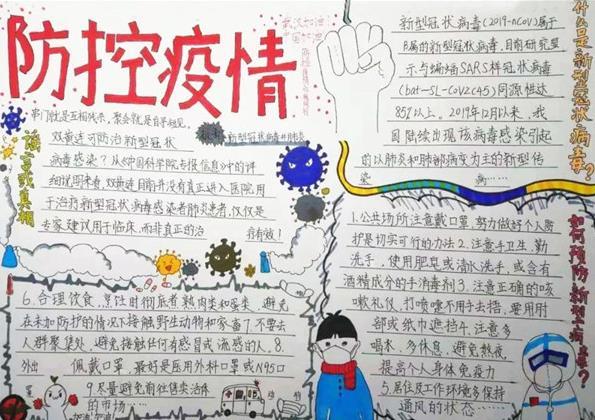 防控疫情
武汉加油
中国加油
串门就是互相残杀，聚会就是自寻短见
双黄连可防治新型冠状
病毒感染？从《中国科学院专报信息》中的评
细说图来看，双黄连目前并没有真正进入医院用
于治疗新型冠状病毒感染者肺炎患者，仅仅是
专家建议用于临床，而非真正的治
疗有效！
新型冠状病毒肺炎
什么是新型冠状病毒？
新型冠状病毒(2019-nCoV)属于
B属的新型冠状病毒，目前研究显
示与蝙蝠SARS样冠状病毒
(bat-SL-CoVZC45)同源性达
85%以上。2019年12月以来，我
国陆续出现该病毒感染引起
的以肺炎和肺部病变为主的新型传
染病……
如何预防新型病毒？
1.公共场所注意戴口罩，努力做好个人防
护是切实可行的办法2.注意手卫生，勤
洗手，使用肥皂或清水洗手，或含有
酒精成分的手消毒剂3.注意正确的咳
嗽礼仪，打喷嚏不用手去捂，要用肘
部或纸巾遮挡4.注意多
喝水，多休息，避免熬夜，
提高个人身体免疫力
5.居住及工作环境多保持
通风的状态……
6.合理饮食，烹饪时彻底煮熟肉类和蛋类，避免
在未加防护的情况下接触野生动物和家畜7.不要去
人群聚集处，避免接触任何有感冒或流感的人，8.
外出佩戴口罩，最好是医用外科口罩或N95口
9.尽量避免前往售卖活体
的市场……